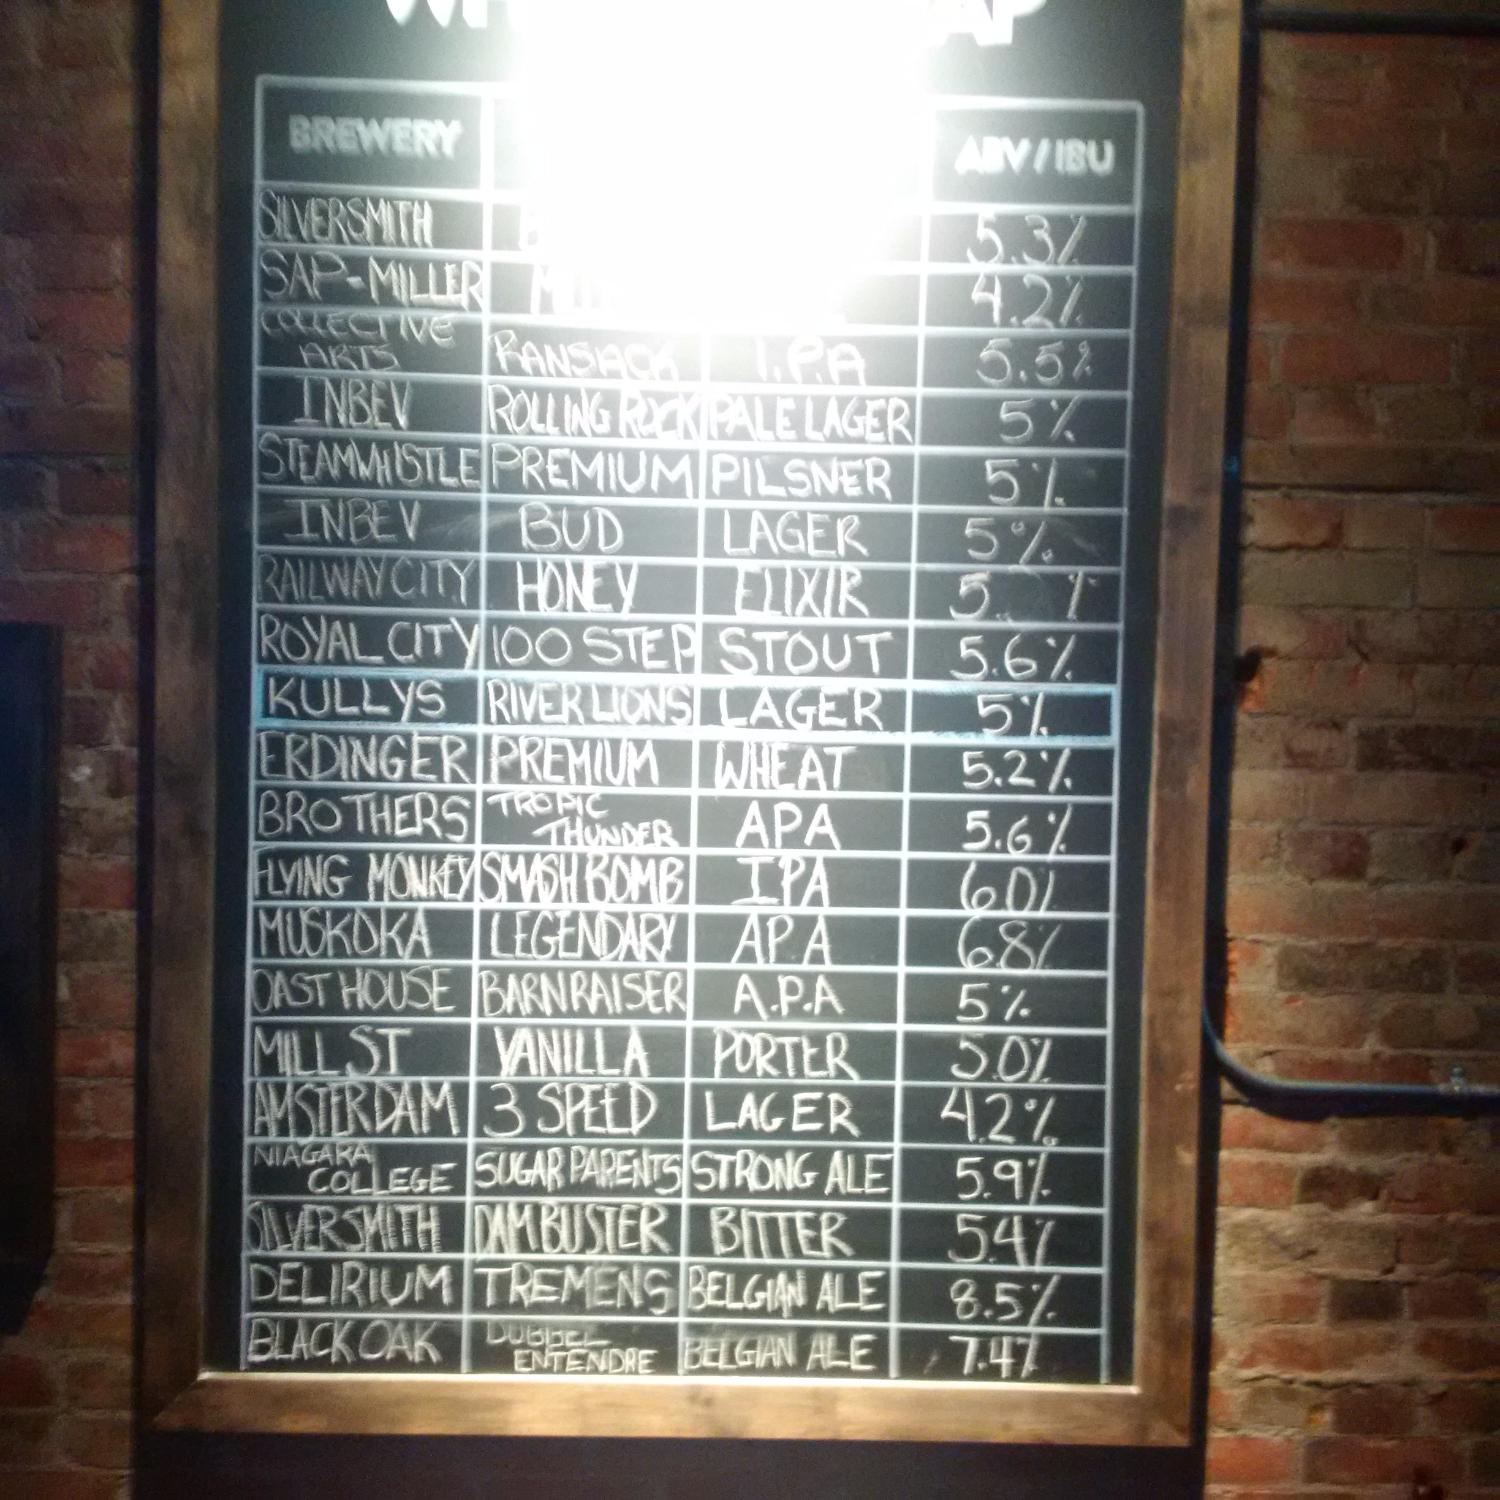 BREWERY ABV / IBU
SILVERSMITH 5.3%
SAP-MILLER 4.2%
COLLECTIVE
ARTS RANSACK I.P.A 5.5%
INBEV ROLLING ROCK PALE LAGER 5%
STEAMWHISTLE PREMIUM PILSNER 5%
INBEV BUD LAGER 5%
RAILWAY CITY HONEY ELIXIR 5. %
ROYAL CITY 100 STEP STOUT 5.6%
KULLYS RIVER LIONS LAGER 5%
ERDINGER PREMIUM WHEAT 5.2%
BROTHERS TROPIC THUNDER APA 5.6%
FLYING MONKEY SMASH BOMB IPA 6.0%
MUSKOKA LEGENDARY AP.A 6.8%
OAST HOUSE BARNRAISER A.P.A 5%
MILL ST VANILLA PORTER 5.0%
AMSTERDAM 3 SPEED LAGER 4.2%
NIAGARA
COLLEGE SUGAR PARENTS STRONG ALE 5.9%
SILVERSMITH DAMBUSTER BITTER 5.4%
DELIRIUM TREMENS BELGIAN ALE 8.5%
BLACK OAK DUBBEL ENTENDRE BELGIAN ALE 7.4%